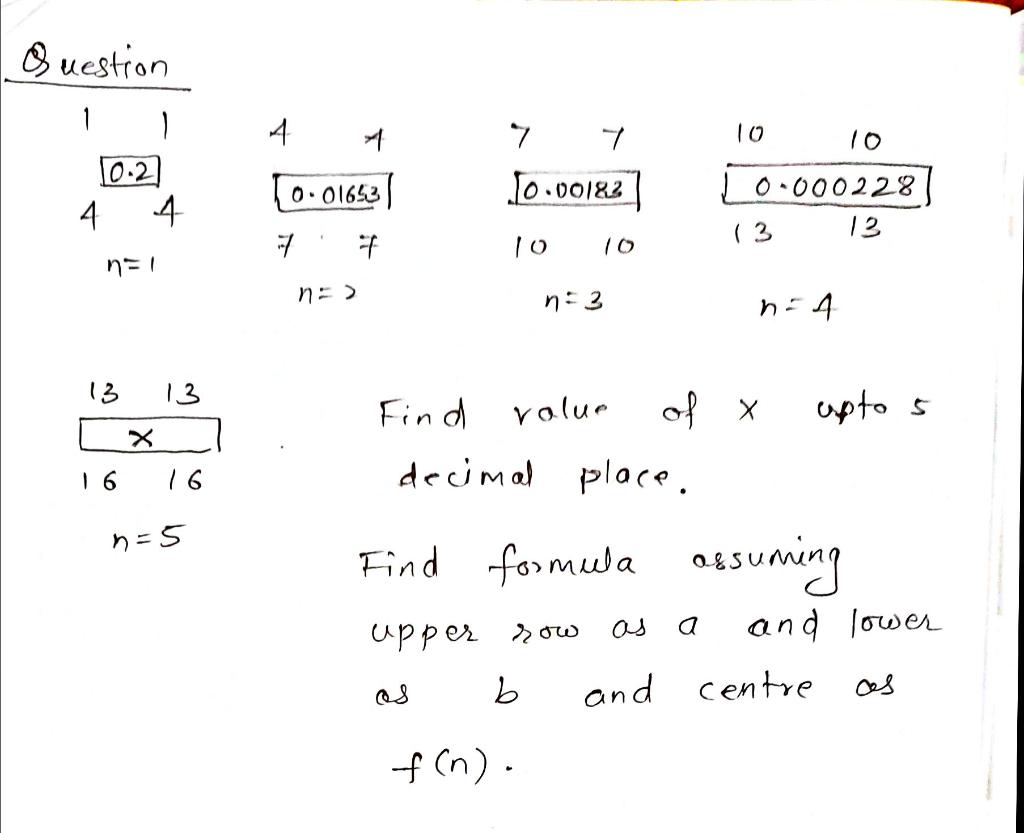 Question
1 1 4 4 7 7 10 10
0.2 0.01653 0.00183 0.000228
4 4 7 7 10 10 13 13
n=1 n=2 n=3 n=4
13 13 Find value of x upto 5
x
16 16 decimal place.
n=5
Find formula assuming
upper row as a and lower
as b and centre as
f(n).